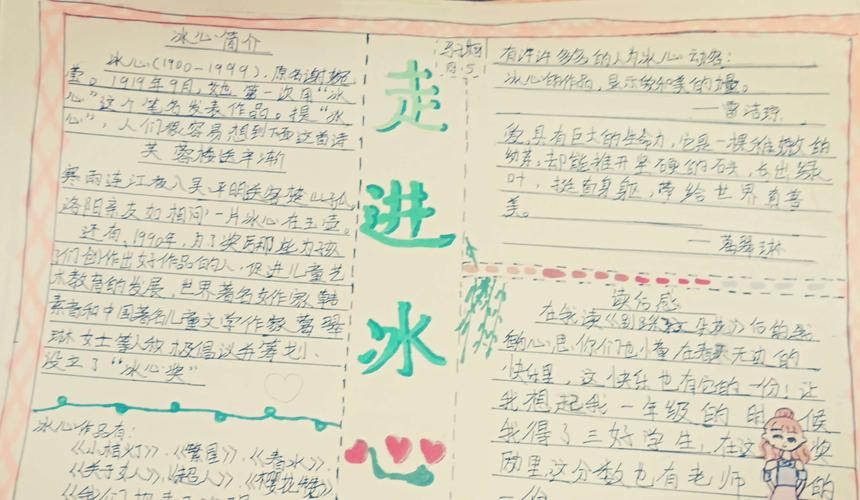 冰心简介
冰心(1900-1999),原名谢婉
莹。1919年9月,她第一次用“冰
心”这个笔名发表作品。提“冰
心”,人们很容易想到下面这首诗
芙蓉楼送辛渐
寒雨连江夜入吴,平明送客楚山孤
洛阳亲友如相问一片冰心在玉壶。
还有,1990年,为了奖励那些为孩
子们创作出好作品的人,促进儿童艺
术教育的发展,世界著名女作家韩
素音和中国著名儿童文学作家葛翠
琳女士等人积极倡议并筹划,
设立了“冰心奖”
冰心作品有:
《小桔灯》,《繁星》,《春水》,
《关于女人》,《超人》,《樱花赞》
走进冰心
有许许多多的人为冰心动容:
冰心的作品,显示爱和美的力量。
——雷洁琼
爱,具有巨大的生命力,它是一棵稚嫩的
幼芽,却能推开坚硬的石头,长出绿
叶,挺直身躯,带给世界真善
美。
——葛翠琳
读后感
在我读《别踩 朵花》后的
的心思,你们也懂在春天无边的
快乐里,这快乐也有它的一份!让
我想起我一年级的时候
我得了三好学生,在这 奖
励里这分数也有老师 的
一份